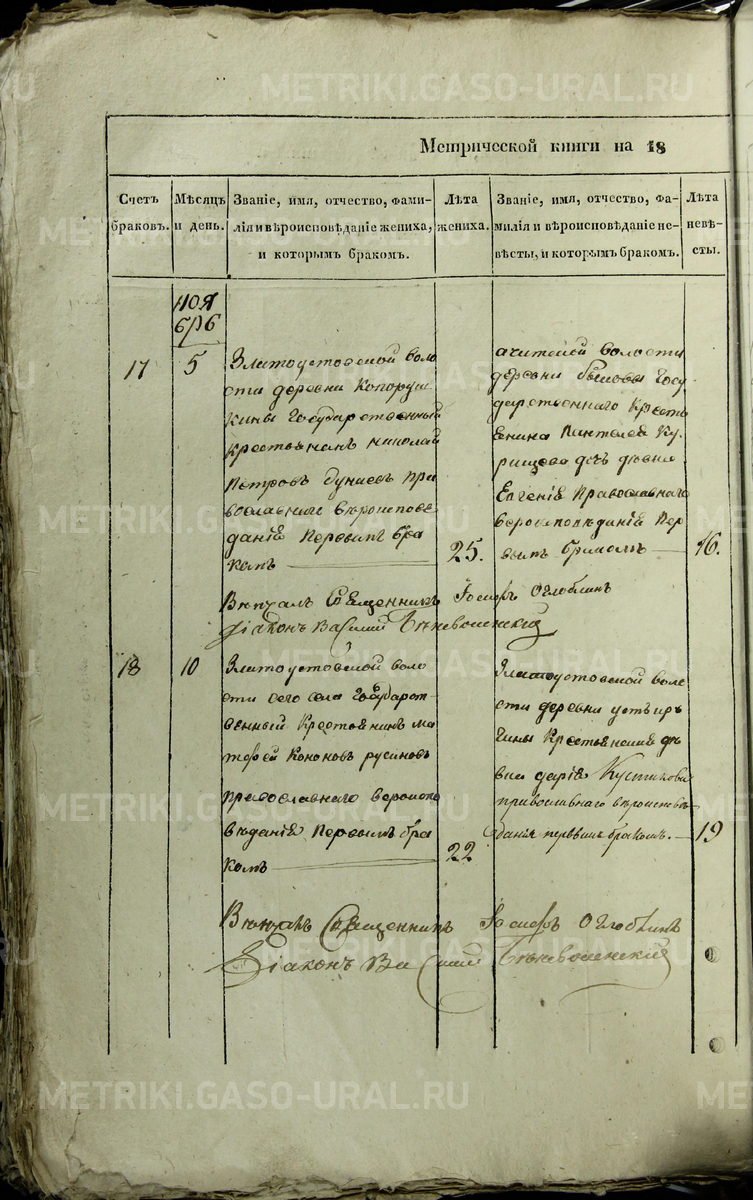 METRIKI.GASO-URAL.RU
Метрической книги на 18
Счетъ браковъ.
Мѣсяцъ и день.
Званіе, имя, отчество, фамилія и вѣроисповѣданіе жениха, и которымъ бракомъ.
Лѣта жениха.
Званіе, имя, отчество, фамилія и вѣроисповѣданіе невѣсты, и которымъ бракомъ.
Лѣта невѣсты.
ноя
брь
17
5
Златоустовской воло
сти деревни Копоруш
кины Государственный
крестьянинъ Николай
Петровъ Дунаевъ пра
вославнаго вѣроиспове
данія первымъ бра
комъ
25.
ачитской волости
деревни Госу
дарственнаго Кресть
янина Пантелея Ку
рищева дочь девка
Евгенія Православнаго
вероисповѣданія пер
вымъ бракомъ
16.
Вѣнчалъ Священникъ Іосифъ Оглоблинъ
Діаконъ Василий
18
10
Златоустовской воло
сти сего села Государст
венный Крестьянинъ Ма
тфей Кононовъ Русиновъ
православнаго вероиспо
вѣданія первымъ бра
комъ
22
Златоустовской воло
сти деревни усть ир
гины Крестьянская дѣ
вка дарія Кустикова
православнаго вѣроисповѣ
данія первымъ бракомъ.
19
Вѣнчалъ Священникъ Іосифъ Оглоблинъ
Діаконъ Василий